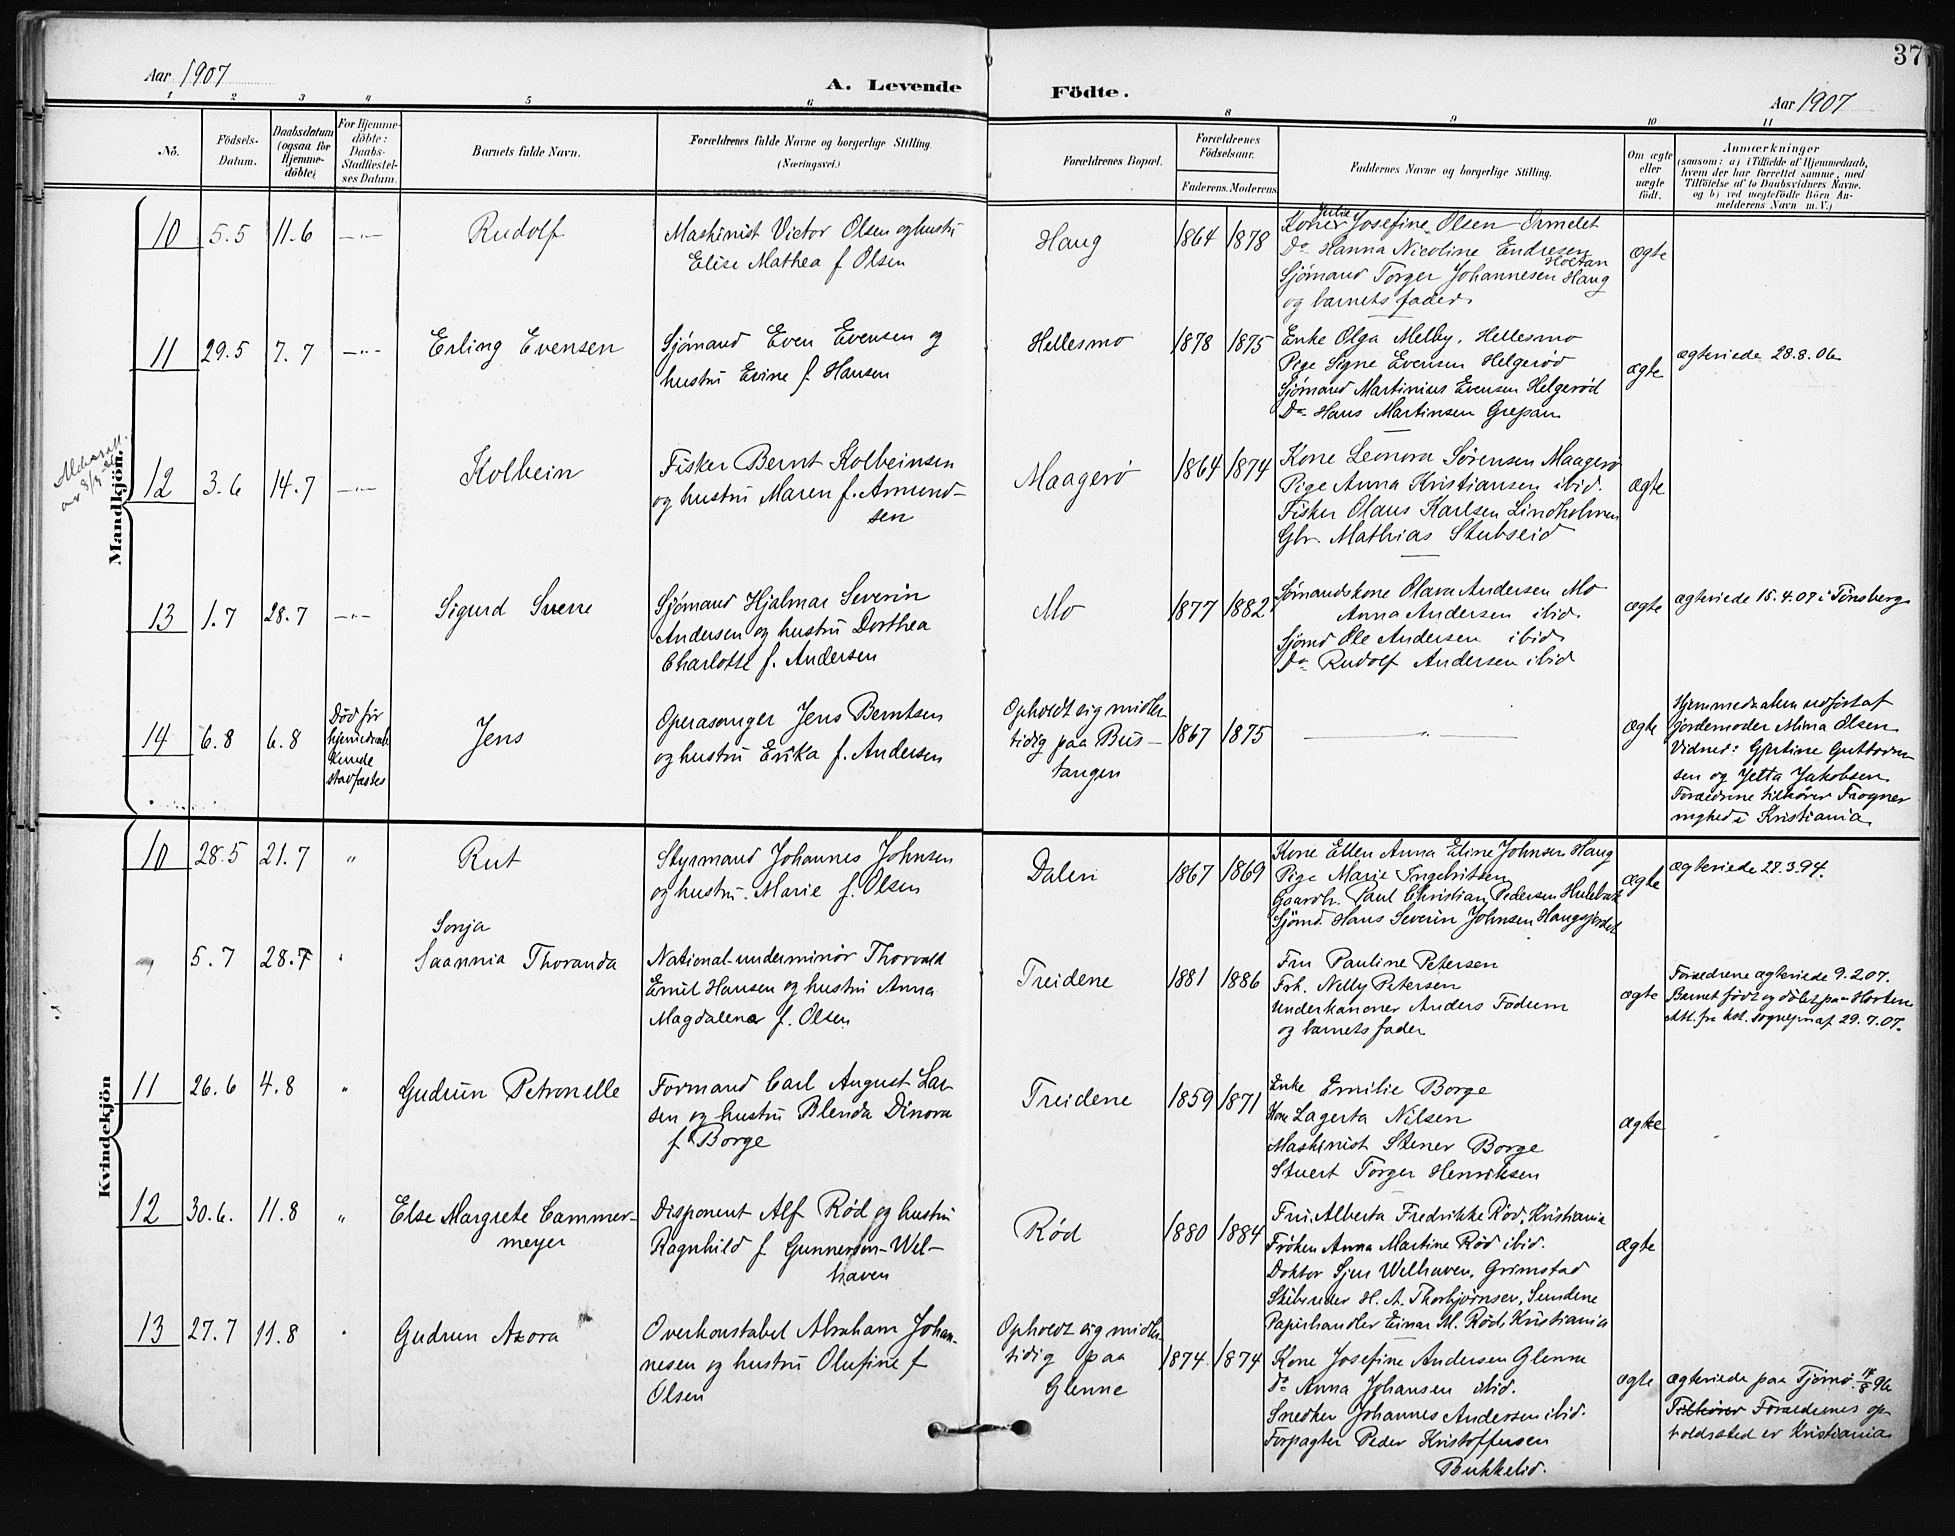 37
Aar 1907
A. Levende Födte.
Aar 1907
1 2 3 4 5 6 8 9 10 11
No.
Födsels-
Datum.
Daabsdatum
(ogsaa for
Hjemme-
döbte)
For Hjemme-
döbte:
Daabs-
Stadfæstel-
ses Datum.
Barnets fulde Navn.
Forældrenes fulde Navne og borgerlige Stilling.
(Næringsvei.)
Forældrenes Bopæl.
Forældrenes
Födselsaar.
Faderens. Moderens.
Faddernes Navne og borgerlige Stilling.
Om ægte
eller
uægte
födt.
Anmærkninger
(saasom: a) i Tilfælde af Hjemmedaab,
hvem der har forrettet samme, med
Tilföielse af to Daabsvidners Navne,
og b) ved uægtefödte Börn An-
melderens Navn m. V.)
Mandkjön.
10 5.5 11.6 —"—
Rudolf
Maskinist Victor Olsen og hustru
Elise Mathea f Olsen
Haug
1864 1878
Julie
Koner Josefine Olsen Ormelet
Do Hanna Nicoline Endresen
Holtan
Sjømand Torger Johannesen Haug
og barnets fader.
ægte
11 29.5 7.7 —"—
Erling Evensen
Sjømand Even Evensen og
hustru Evine f. Hansen
Hellesmo
1878 1875
Enke Olga Melby, Hellesmo
Pige Signe Evensen Helgerød
Sjømand Martinius Evensen Helgerød
Do Hans Martinsen Grepan
ægte
ægteviede 28.8.06
12 3.6 14.7 —"—
Kolbein
Fisker Bernt Kolbeinsen
og hustru Maren f. Amund-
sen
Maagerø
1864 1874
Kone Leonora Sørensen Maagerø
Pige Anna Kristiansen ibid.
Fisker Olaus Karlsen Lindholmen
Gbr. Mathias Stubseid
ægte
13 1.7 28.7 —"—
Sigurd Sverre
Sjømand Hjalmar Severin
Andersen og hustru Dorthea
Charlotte f. Andersen
Mo
1877 1882
Sømandskone Olava Andersen Mo
Anna Andersen ibid.
Sjømd Ole Andersen ibid
Do Rudolf Andersen ibid
ægte
ægteviede 15.4.07 i Tønsberg
14 6.8 6.8
Død før
hjemmedaab
kunde
stadfæstes
Jens
Operasanger Jens Berntsen
og hustru Erika f. Andersen
Opholdt sig midler-
tidig paa Bus-
tangen
1867 1875
—"—
ægte
Hjemmedaaben udført af
jordemoder Mina Olsen
Vidner: Gjurtine Guttorm
sen og Jetta Jakobsen.
Forældrene tilhører Frogner
mghed i Kristiania
Kvindekjön
10 28.5 21.7 "
Rut
Styrmand Johannes Johnsen
og hustru Marie f. Olsen
Dalen
1867 1869
Kone Ellen Anna Eline Johnsen Haug
Pige Marie Ingebritsen
Gaardbr. Paul Christian Pedersen Hulebak
Sjømd. Hans Severin Johnsen Haugsjordet
ægte
ægteviede 27.3.94.
5.7 28.7 "
Sonja
Saannia Thoranda
National-underminør Thorvald
Emil Hansen og hustru Anna
Magdalena f. Olsen
Treidene
1881 1886
Fru Pauline Petersen
Frk. Nelly Petersen
Underkanoner Anders Fadum
og barnets fader
ægte
Forældrene ægteviede 9.2.07.
Barnet født og døbt paa Horten
Att. fra kst. sognepr. af 29.7.07.
11 26.6 4.8 "
Gudrun Petronelle
Formand Carl August Lar-
sen og hustru Blenda Dinora
f. Borge
Treidene
1859 1871
Enke Emilie Borge
Kone Lagerta Nilsen
Maskinist Stener Borge
Stuert Torger Henriksen
ægte
12 30.6. 11.8 "
Else Margrete Cammer-
meyer
Disponent Alf Rød og hustru
Ragnhild f Gunnerson-Wel-
haven
Rød
1880 1884
Fru Alberta Fredrikke Rød, Kristiania
Frøken Anna Martine Rød ibid.
Doktor Sjur Welhaven, Grimstad
Skibsreder H. A. Thorbjørnsen, Sundene
Papirhandler Einar M. Rød, Kristiania
ægte
13 27.7 11.8 "
Gudrun Azora
Overkonstabel Abraham Johan-
nesen og hustru Olufine f
Olsen
Opholdt sig midler-
tidig paa
Glenne
1874 1874
Kone Josefine Andersen Glenne
Do Anna Johansen ibid.
Snedker Johannes Andersen ibid.
Forpagter Peder Kristoffersen
Bukkelid.
ægte
ægteviede paa Tjømø 18/8 96
Tilhører Forældrenes op-
holdssted er Kristiania